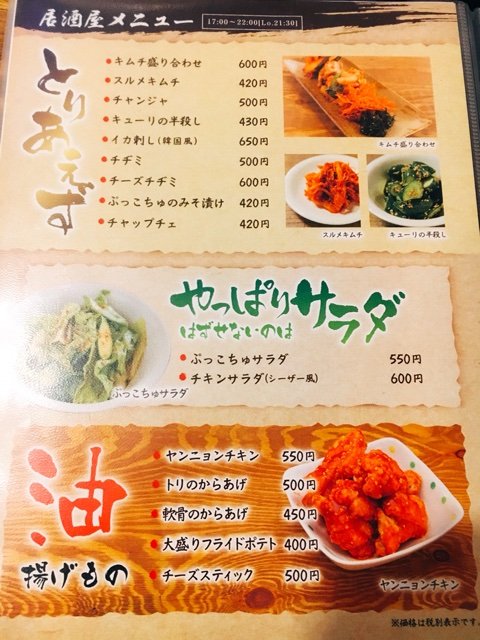 居酒屋メニュー 17:00～22:00[Lo.21:30]
とりあえず
キムチ盛り合わせ 600円
スルメキムチ 420円
チャンジャ 500円
キューリの半殺し 430円
イカ刺し(韓国風) 650円
チヂミ 500円
チーズチヂミ 600円
ぷっこちゅのみそ漬け 420円
チャップチェ 420円
キムチ盛り合わせ
スルメキムチ
キューリの半殺し
やっぱりサラダ
はずせないのは
ぷっこちゅサラダ 550円
チキンサラダ(シーザー風) 600円
ぷっこちゅサラダ
油
揚げもの
ヤンニョンチキン 550円
トリのからあげ 500円
軟骨のからあげ 450円
大盛りフライドポテト 400円
チーズスティック 500円
ヤンニョンチキン
※価格は税別表示です。